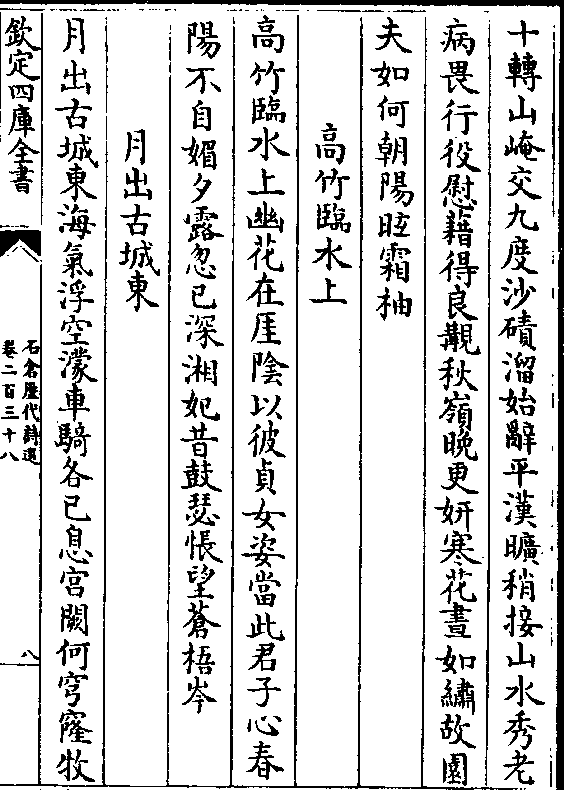 十轉山崦交九度沙磧溜始辭平漢曠稍接山水秀老
病畏行役慰藉得良覯秋嶺晚更妍寒花晝如繡故園
夫如何朝陽眩霜柚
高竹臨水上
高竹臨水上幽花在厓陰以彼貞女姿當此君子心春
陽不自媚夕露忽已深湘妃昔鼓瑟悵望蒼梧岑
月出古城東
月出古城東海氣浮空濛車騎各已息宮闕何穹窿牧
欽定四庫全書
石倉歷代詩選
卷二百三十八
八